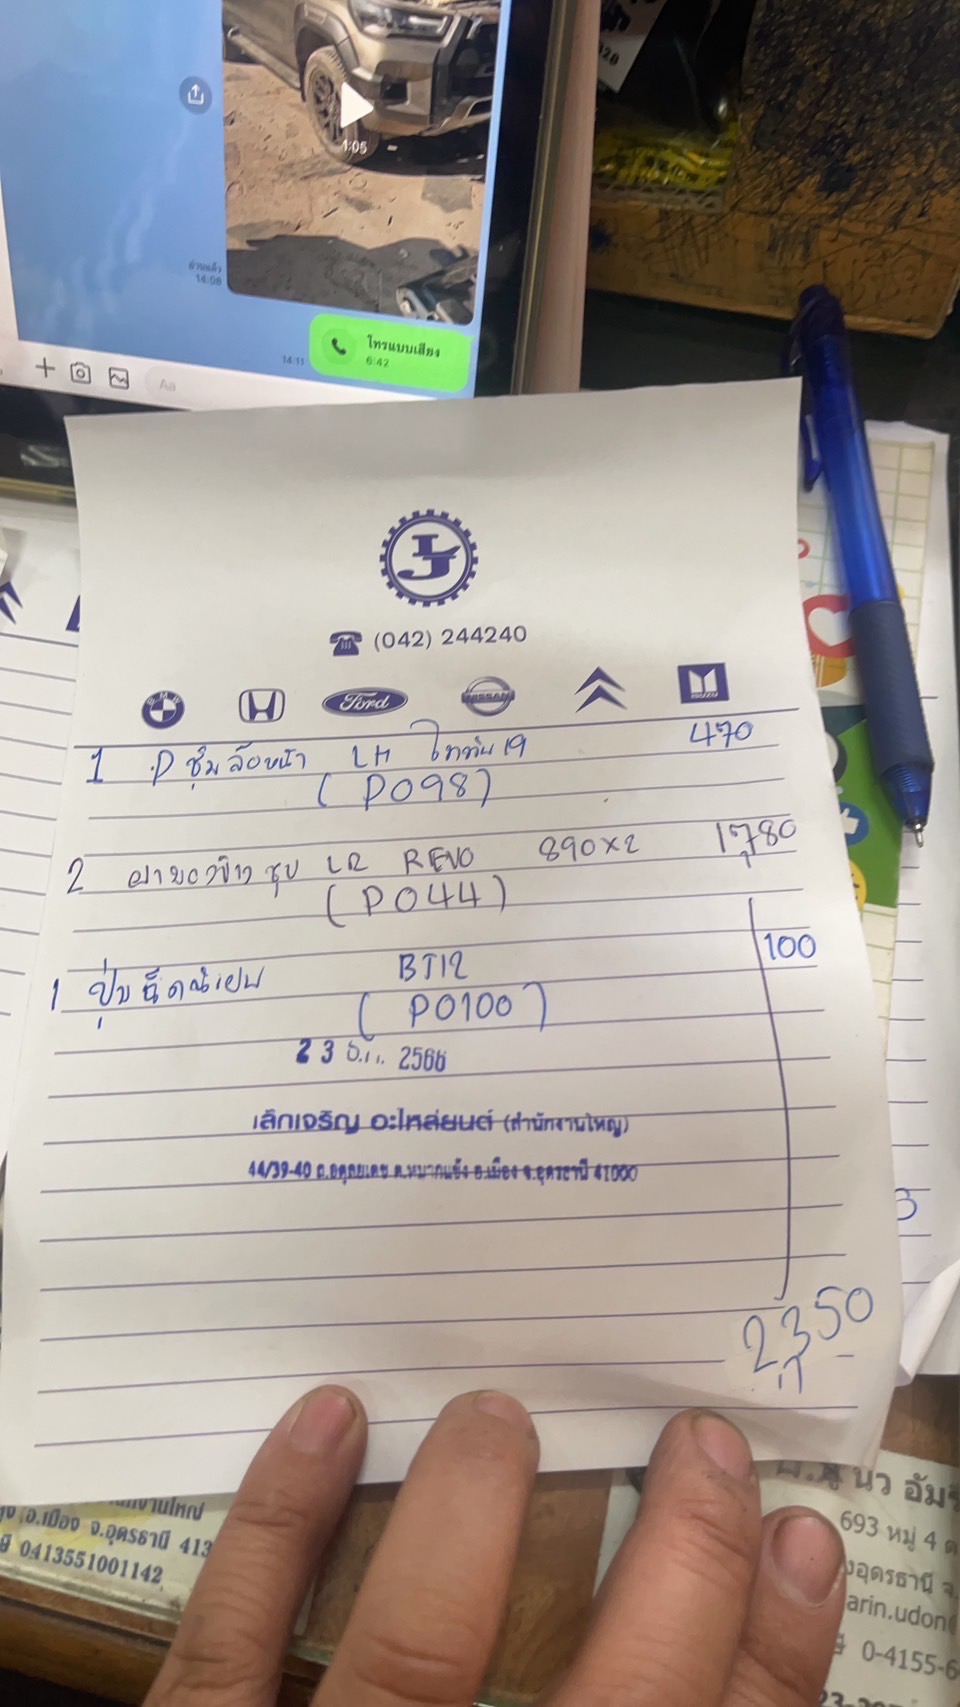 1:05
อ่านแล้ว
14:08
โทรแบบเสียง
6:42
14:11
Aa
120
LJ
(042) 244240
BMW
Ford
NISSAN
ISUZU
1 .P ซุ้มล้อหน้า LH ไททัน 19 470
(P098)
2 LR REVO 890x2 1,780
(P044)
1 ปุ่ม BT12 100
(P0100)
2 3 ธ.ค. 2566
เล็กเจริญ อะไหล่ยนต์ (สำนักงานใหญ่)
44/39-40 ถ.อดุลยเดช ต.หมากแข้ง อ.เมือง จ.อุดรธานี 41000
2350
3
อ.เมือง จ.อุดรธานี 413
0413551001142
นิว อัม
693 หมู่ 4 ต
อุดรธานี จ.
arin.udon
0-4155-6